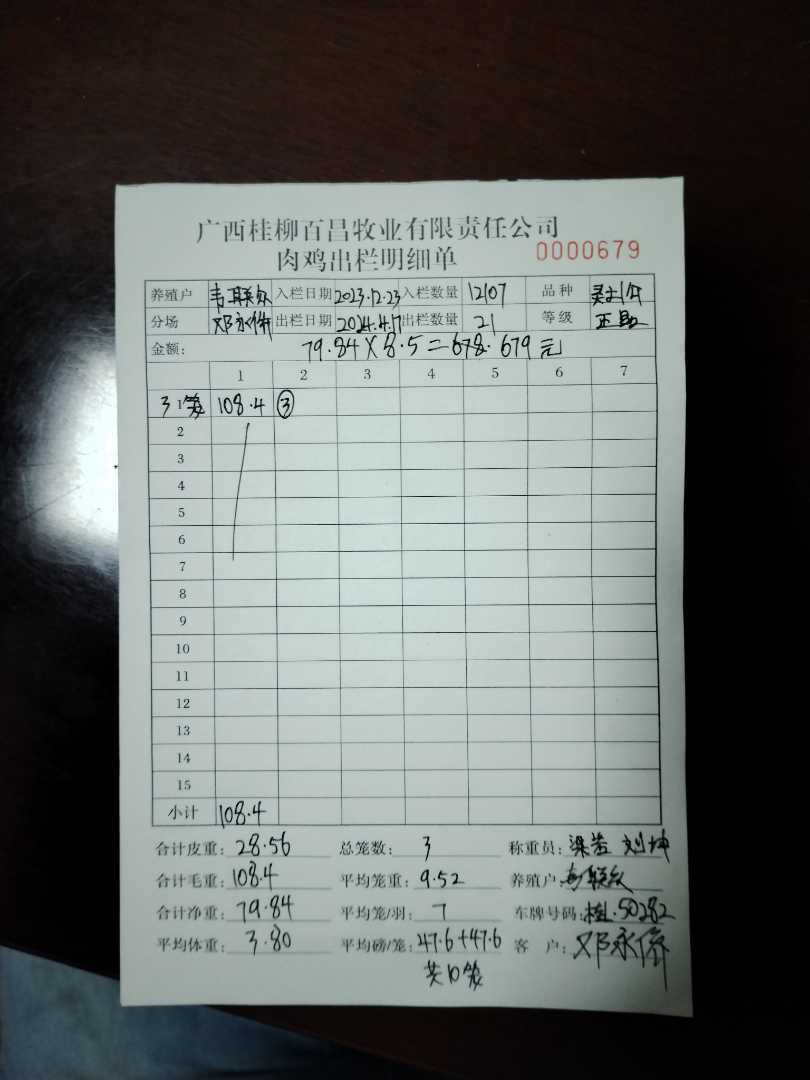 广西桂柳百昌牧业有限责任公司
肉鸡出栏明细单 0000679
养殖户 韦联众 入栏日期 2023.12.23 入栏数量 12107 品种 灵土1公
分场 邓永侨 出栏日期 2024.4.17 出栏数量 21 等级
金额: 79.84×8.5=678.679元
1 2 3 4 5 6 7
1 3笼 108.4 ③
2
3
4
5
6
7
8
9
10
11
12
13
14
15
小计 108.4
合计皮重: 28.56 总笼数: 3 称重员: 刘坤
合计毛重: 108.4 平均笼重: 9.52 养殖户: 韦联众
合计净重: 79.84 平均笼/羽: 7 车牌号码: 桂L·50282
平均体重: 3.80 平均磅/笼: 47.6+47.6 客户: 邓永侨
共10笼